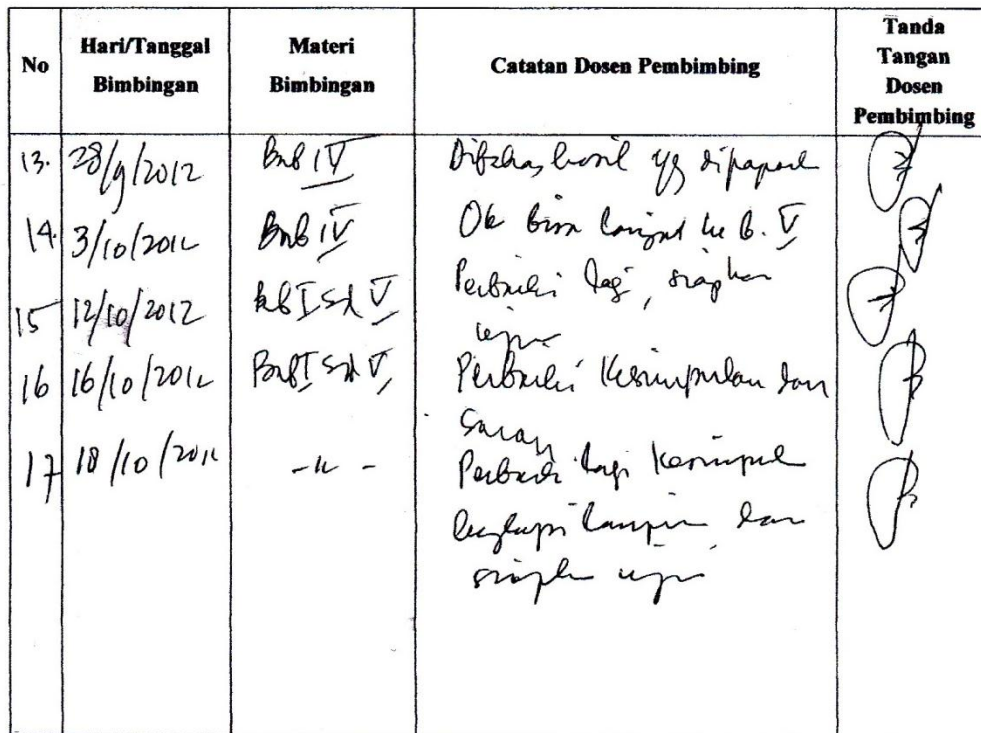 No Hari/Tanggal Bimbingan Materi Bimbingan Catatan Dosen Pembimbing Tanda Tangan Dosen Pembimbing
13. 28/9/2012 Bab IV hasil yg
14. 3/10/2012 Bab IV Ok bisa lanjut ke B. V
15 12/10/2012 Bab I sd V Perbaiki lagi, siapkan
ujian
16 16/10/2012 Bab I sd V, Perbaiki Kesimpulan dan
Saran
17 18/10/2012 -"- Perbaiki lagi
lengkapi dan